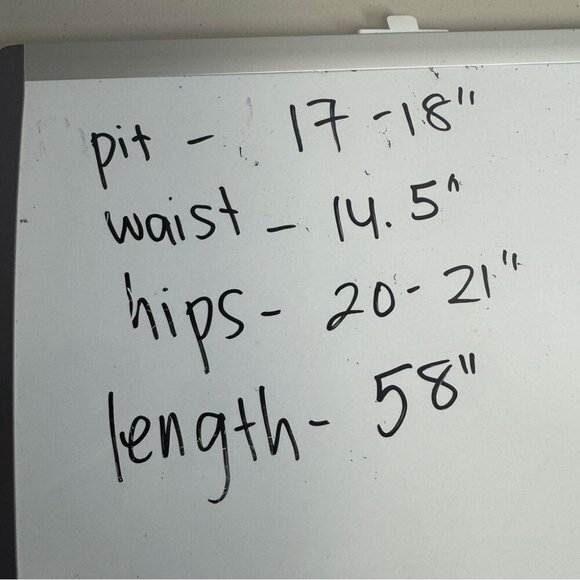 pit - 17-18"
waist - 14.5"
hips - 20-21"
length - 58"